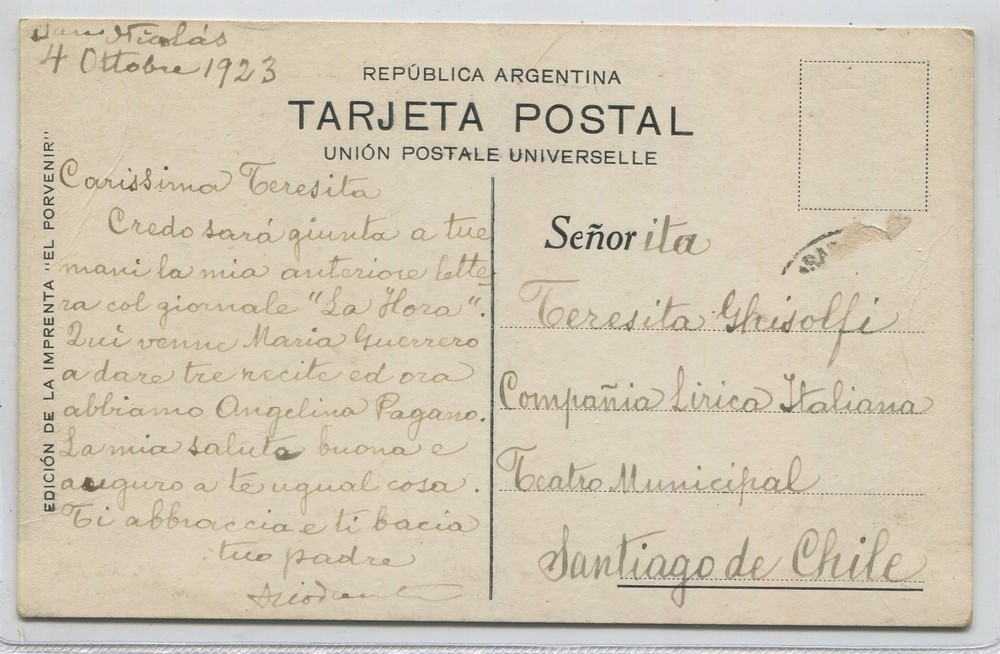 San Nicolás
4 Ottobre 1923
REPÚBLICA ARGENTINA
TARJETA POSTAL
UNIÓN POSTALE UNIVERSELLE
EDICIÓN DE LA IMPRENTA "EL PORVENIR"
Carissima Teresita
Credo sará giunta a tue
mani la mia anteriore lette-
ra col giornale "La Hora".
Qui venne Maria Guerrero
a dare tre recite ed ora
abbiamo Angelina Pagano.
La mia saluta buona e
auguro a te ugual cosa.
Ti abbraccia e ti bacia
tuo padre
Señorita
Teresita Ghisolfi
Compañia Lirica Italiana
Teatro Municipal
Santiago de Chile